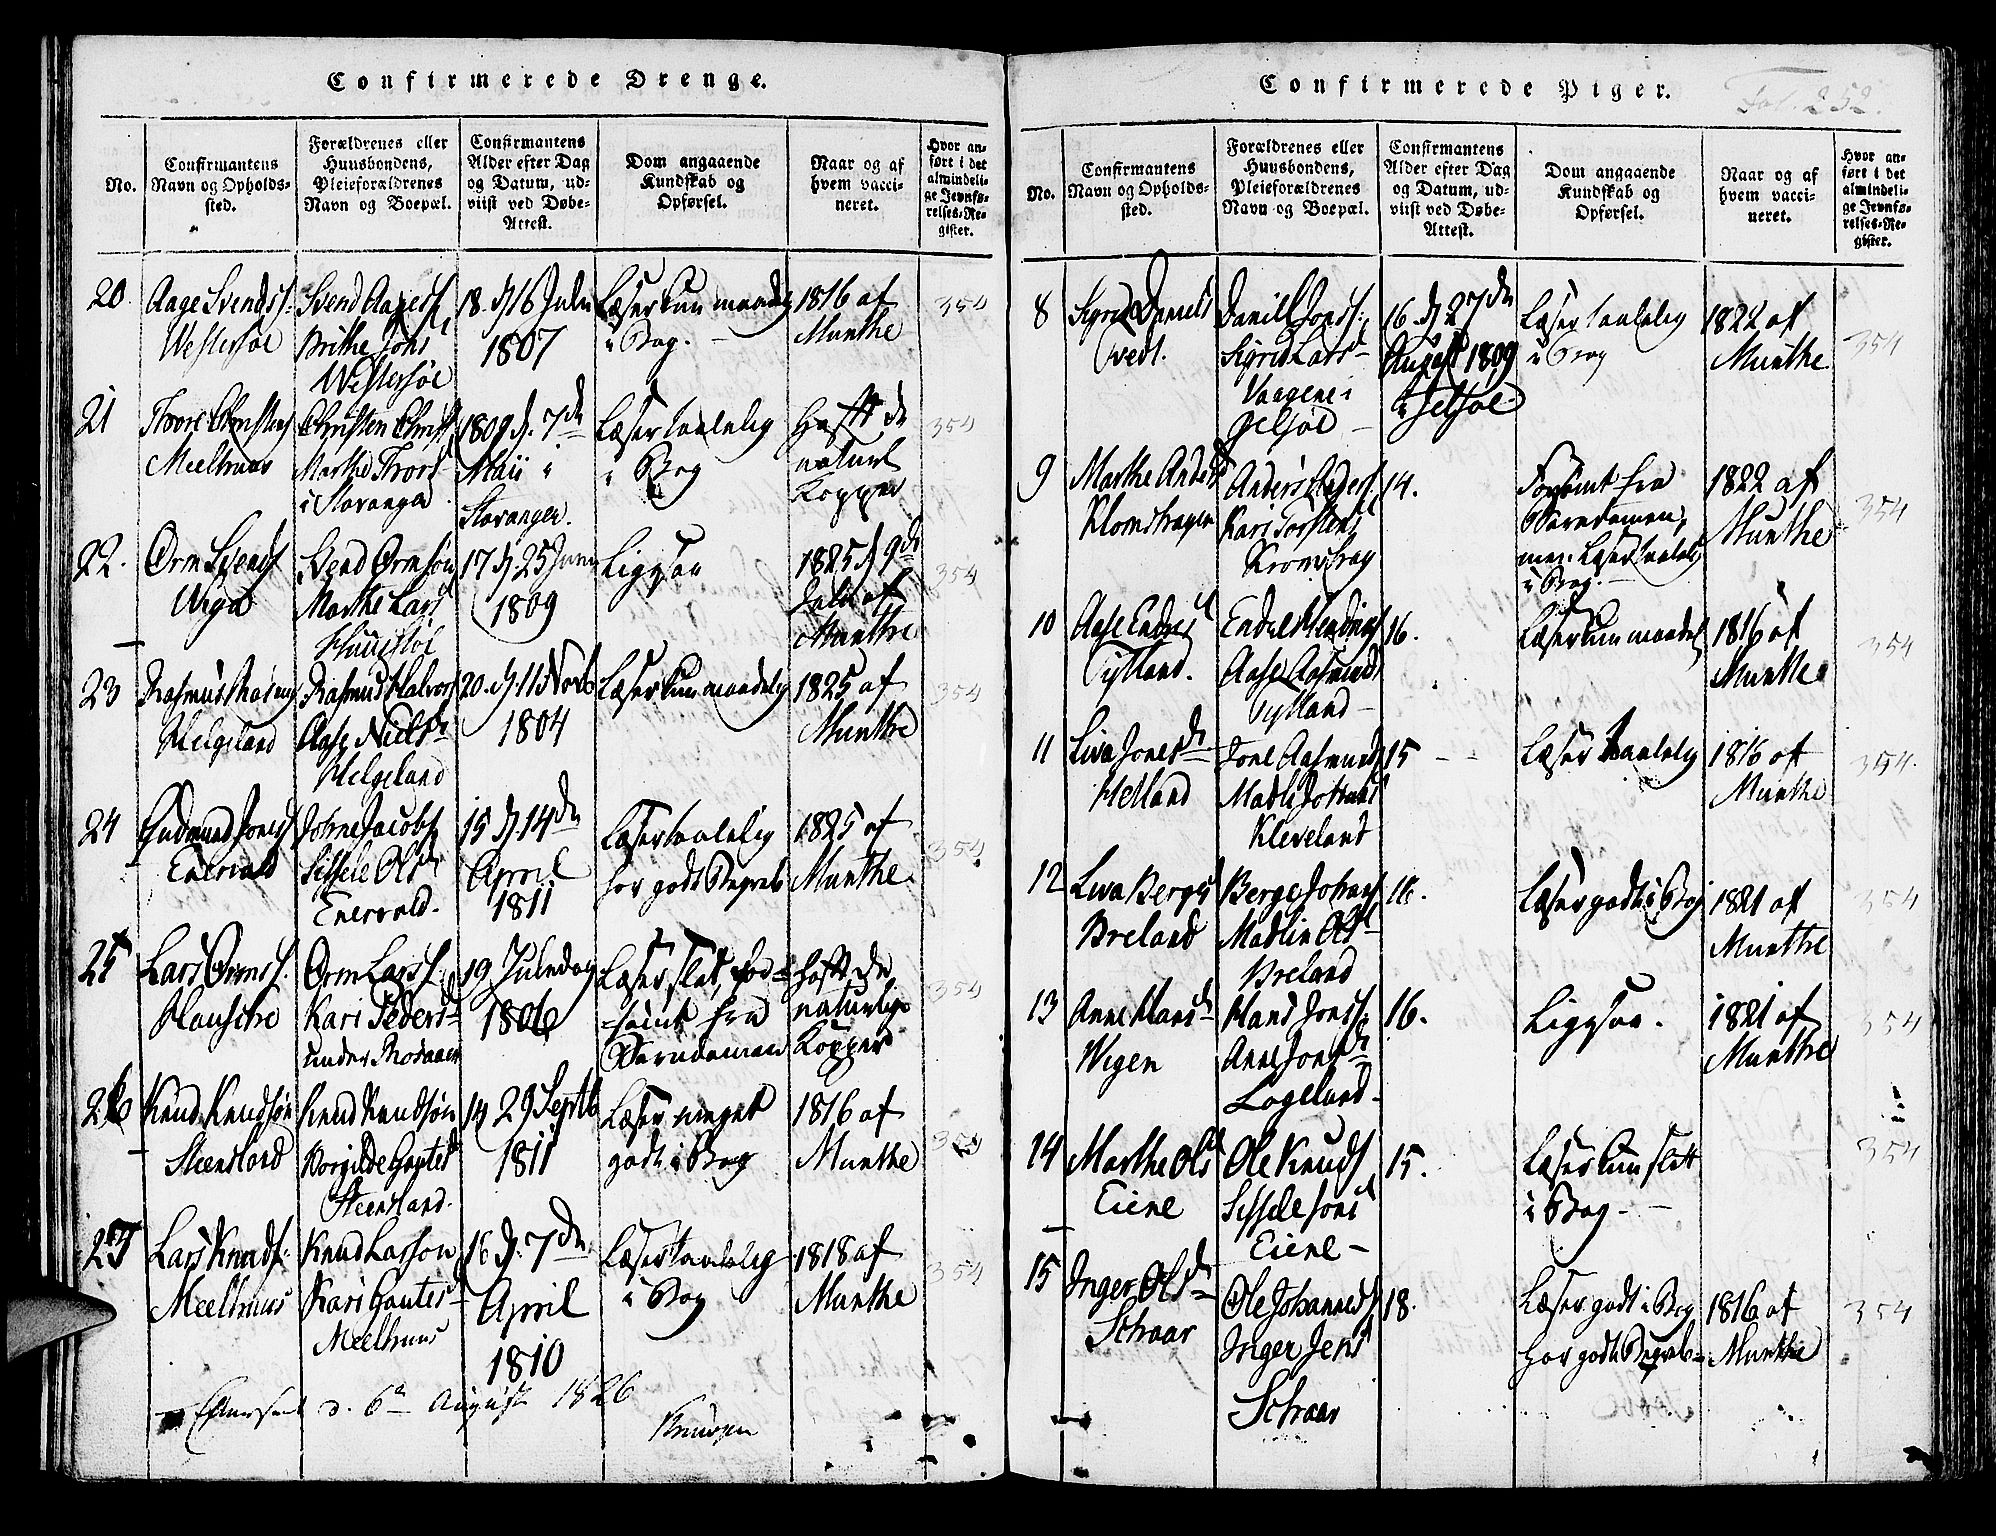 Confirmerede Drenge.
No.
Confirmantens
Navn og Opholds-
sted.
Forældrenes eller
Huusbondens,
Pleieforældrenes
Navn og Boepæl.
Confirmantens
Alder efter Dag
og Datum, ud-
viist ved Døbe-
Attest.
Dom angaaende
Kundskab og
Opførsel.
Naar og af
hvem vacci-
neret.
Hvor an-
ført i det
almindeli-
ge Jevnfø-
relses-Re-
gister.
20.
Aage Svends.
Westersøe
Svend Aagess.
Brithe Jons
Westersøe
18. d. 16 Julii
1807
Læser kun maadelig
i Bog.
1816 af
Munthe
354
21
Tvore Christens
Meelhuus
Christen Christ
Marthe Tvors
i Stavanger
1809 d. 7de
Maii i
Stavanger.
Læser taalelig
i Bog
Haft de
naturl
Kopper
354
22.
Orm Svends
Wiga
Svend Ormsøn
Marthe Lars
17 d. 25 Junii
1809
Ligesaa
1825 d. 9de
Julii af
Munthe
354
23
Rasmus Rasmus
Helgeland
Rasmus Halvors
Aase Nielsd
Helgeland
20. d. 11 Novb
1804
Læser kun maadelig
1825 af
Munthe
354
24
Gudmund Joness
Enervald
Johne Jacobs
Sissele Olsd
Enervald.
15 d. 14de
April
1811
Læser taalelig
har godt Begreb
1825 af
Munthe.
354
25
Lars Orms.
Hausche
Orm Larss.
Kari Peders
under
19 Juledag
1806
Læser slet, for-
sømt fra
Barndommen
Haft de
naturlige
Kopper
354
26
Knud Knudsøn
Steensland
Knud Knudsøn
Borgilde Gautes
Steensland.
14 29 Septb
1811
Læser meget
godt i Bog
1816 af
Munthe
354
27
Lars Knuds.
Meelhuus
Knud Larsson
Kari Gautes
Meelhuus
16 d. 7de
April
1810
Læser taalelig
i Bog
1818 af
Munthe
354
d. 6te August 1826
Confirmerede Piger.
Fol. 252.
No.
Confirmantens
Navn og Opholds-
sted.
Forældrenes eller
Huusbondens,
Pleieforældrenes
Navn og Boepæl.
Confirmantens
Alder efter Dag
og Datum, ud-
viist ved Døbe-
Attest.
Dom angaaende
Kundskab og
Opførsel.
Naar og af
hvem vacci-
neret.
Hvor an-
ført i det
almindeli-
ge Jevnfø-
relses-Re-
gister.
8
Sigrid Daniels
Daniel Jons.
Sigrid Larsd
Vaagene i
Jelsøe
16 d. 27de
August 1809
i Jelsøe
Læser taalelig
i Bog
1822 af
Munthe.
354
9
Marthe Anders
Klomshagen
Anders Anders
Kari Torstens
Kromshag
14.
Forsømt fra
Barndomen,
men Læser taalel
i Bog.
1822 af
Munthe
354
10
Aase Endres
Tytland.
Endre Hendrichs
Aase Aasmunds
Tytland
16.
Læser kun maadel
1816 af
Munthe
354
11
Liva Jonesd
Helland
Jone Aasmunds
Madli Johans
Kleveland
15
Læser taalelig
1816 af
Munthe
354.
12
Liva Berges
Breland
Berge Johans
Madlin Ols
Breland
16.
Læser godt i Bog
1821 af
Munthe
354
13
Anne Hansd
Wegen
Hans Jons.
Anne Jonsd
Lageland
16.
Ligesaa.
1821 af
Munthe
354
14
Marthe Ols
Eiene
Ole Knuds
Sissele Jons
Eiene
15.
Læser kun slett
i Bog
354
15
Inger Olsd
Schaar
Ole Johanneds
Inger Jens
Schaar
18.
Læser godt i Bog
har godt Begreb
1816 af
Munthe
354